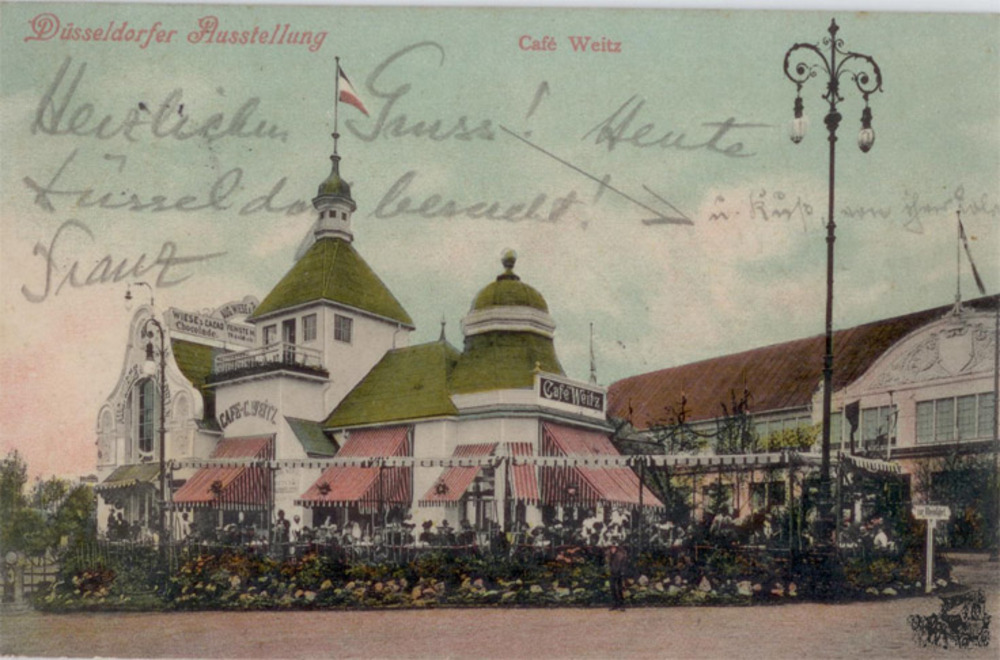 Düsseldorfer Ausstellung
Café Weitz
Herzlichen Gruss! Heute
Düsseldorf besucht!
u. Kuß von
Franz
WIESE's CACAO
Chocolade
CAFÉ C. WEITZ
Café Weitz